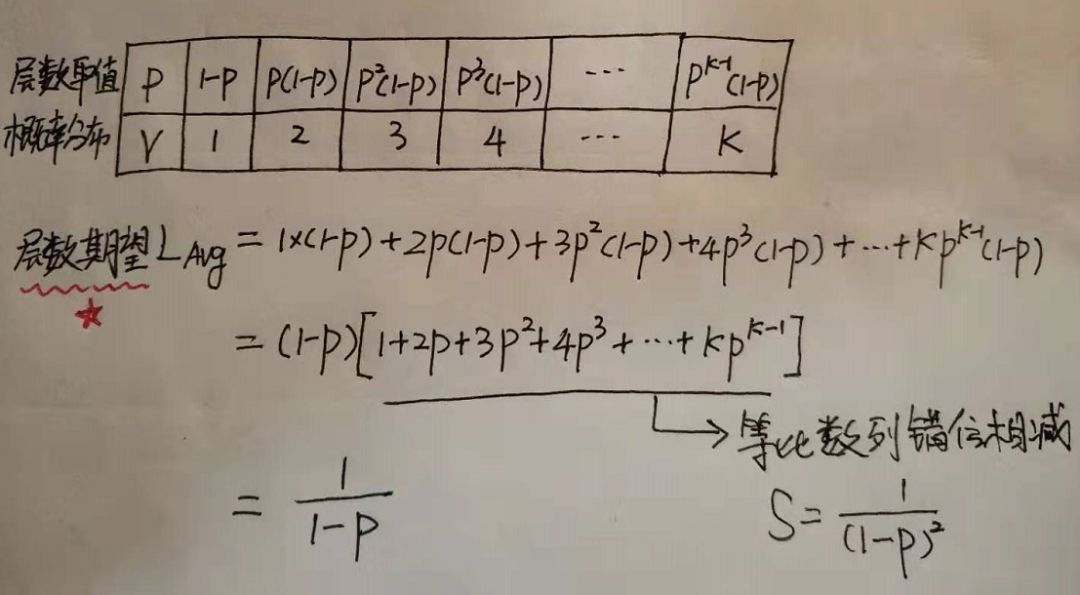 层数取值 P 1-P P(1-P) P²(1-P) P³(1-P) ... P^{k-1}(1-P)
概率分布 V 1 2 3 4 ... K
层数期望 L_{Avg} = 1×(1-P) + 2P(1-P) + 3P²(1-P) + 4P³(1-P) + ... + KP^{k-1}(1-P)
= (1-P)[1+2P+3P²+4P³+...+KP^{K-1}]
→ 等比数列错位相减
= \frac{1}{1-P}
S = \frac{1}{(1-P)²}